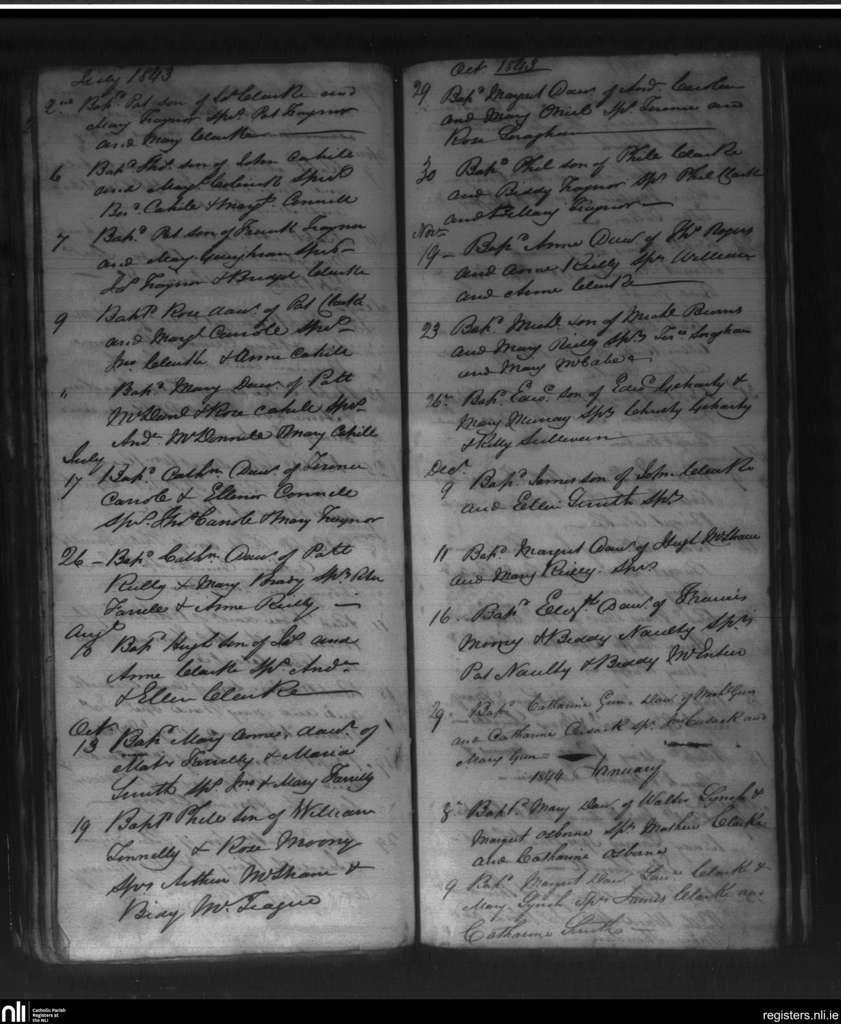 July 1843
2nd Bapd Pat son of Jas Clarke and
Mary Traynor Sprs Pat Traynor
and Mary Clarke
6 Bapd Thos son of John Cahile
and Margt Sprs
Cahile & Margt Connell
7 Bapd Pat son of Frank Traynor
and Mary Sprs
Jas Traynor & Bridget Clarke
9 Bapd Rose dawr of Pat Clark
and Margt Carrole Sprs
Jno Clarke & Anne Cahile
" Bapd Mary Dawr of Patt
& Rose Cahile Sprs
Andw & Mary Cahile
July
17 Bapd Cathn Dawr of Terence
Carrole & Ellenor Connele
Sprs Thos Carrole & Mary Traynor
26 – Bapd Cathn Dawr of Patt
Reilly & Mary Brady Sprs
Farrele & Anne Reilly –
Augt
Bapd Hugh son of Jas and
Anne Clarke Sprs Andw
& Ellen Clarke
Oct
13 Bapd Mary Anne dawr of
Farrelly & Maria
Smith Sprs Jno & Mary Farrelly
19 Bapt Phile son of William
Donnelly & Rose Moony
Sprs Arthur McShane &
Bidy McTeague
Oct 1843
29 Bapd Margret Dawr of Andw
and Mary Sprs Terence and
Rose
30 Bapd Phil son of Phile Clarke
and Biddy Traynor Sprs Phil Clark
and Mary Traynor
Novr
19 – Bapd Anne Dawr of Thos Rogers
and Anne Reilly Sprs William
and Anne Clarke
23 Bapd Michl son of Michl Burns
and Mary Reilly Sprs
and Mary McCabe
26th Bapd Edwd son of Edwd Geharty &
Mary Murray Sprs Christy Geharty
& Kitty Sullivan
Decr
9 Bapd James son of Clarke
and Ellen Smith Sprs
11 Bapd Margret Dawr of Hugh McShane
and Mary Reilly. Sprs
16. Bapd Elizth Dawr of Francis
Moony & Biddy Naulty Sprs
Pat Naulty & Biddy McEntee
29. Bapd Catharine Gun Dawr of Gun
and Catharine Cusack Sprs Cusack and
Mary Gun
1844 January
8 Bapd Mary Dawr of Walter Lynch &
Margret Osborne Sprs Mathew Clarke
and Catharine Osborne
9 Bapd Margret Dawr Clark &
Mary Lynch Sprs James Clarke and
Catharine Smith
nli
Catholic Parish
Registers at
the NLI
registers.nli.ie